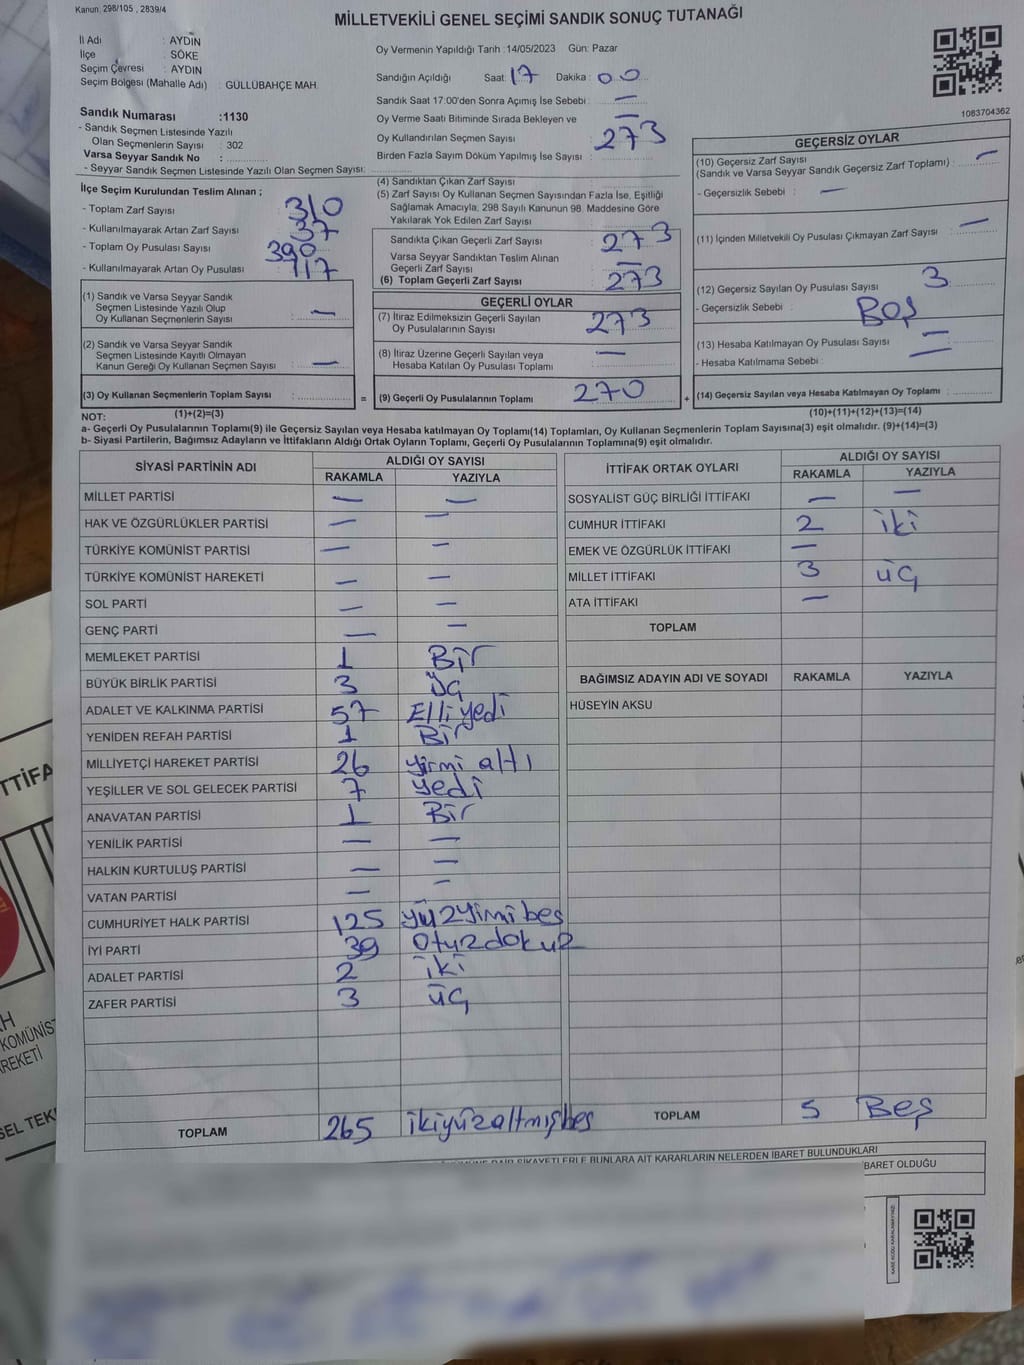 Kanun, 298/105 , 2839/4
MİLLETVEKİLİ GENEL SEÇİMİ SANDIK SONUÇ TUTANAĞI
İl Adı : AYDIN
İlçe : SÖKE
Seçim Çevresi : AYDIN
Seçim Bölgesi (Mahalle Adı) : GÜLLÜBAHÇE MAH.
Sandık Numarası :1130
- Sandık Seçmen Listesinde Yazılı
Olan Seçmenlerin Sayısı : 302
Varsa Seyyar Sandık No :
- Seyyar Sandık Seçmen Listesinde Yazılı Olan Seçmen Sayısı:
Oy Vermenin Yapıldığı Tarih :14/05/2023 Gün: Pazar
Sandığın Açıldığı Saat: 17 Dakika: 00
Sandık Saat 17:00'den Sonra Açımış İse Sebebi : —
Oy Verme Saati Bitiminde Sırada Bekleyen ve —
Oy Kullandırılan Seçmen Sayısı : 273
Birden Fazla Sayım Döküm Yapılmış İse Sayısı :
1083704362
İlçe Seçim Kurulundan Teslim Alınan ;
- Toplam Zarf Sayısı : 310
- Kullanılmayarak Artan Zarf Sayısı : 37
- Toplam Oy Pusulası Sayısı : 390
- Kullanılmayarak Artan Oy Pusulası : 117
(1) Sandık ve Varsa Seyyar Sandık
Seçmen Listesinde Yazılı Olup
Oy Kullanan Seçmenlerin Sayısı : —
(2) Sandık ve Varsa Seyyar Sandık
Seçmen Listesinde Kayıtlı Olmayan
Kanun Gereği Oy Kullanan Seçmen Sayısı : —
(3) Oy Kullanan Seçmenlerin Toplam Sayısı :
(1)+(2)=(3)
(4) Sandıktan Çıkan Zarf Sayısı :
(5) Zarf Sayısı Oy Kullanan Seçmen Sayısından Fazla İse, Eşitliği
Sağlamak Amacıyla, 298 Sayılı Kanunun 98. Maddesine Göre
Yakılarak Yok Edilen Zarf Sayısı :
Sandıkta Çıkan Geçerli Zarf Sayısı : 273
Varsa Seyyar Sandıktan Teslim Alınan
Geçerli Zarf Sayısı : —
(6) Toplam Geçerli Zarf Sayısı : 273
GEÇERLİ OYLAR
(7) İtiraz Edilmeksizin Geçerli Sayılan
Oy Pusulalarının Sayısı : 273
(8) İtiraz Üzerine Geçerli Sayılan veya
Hesaba Katılan Oy Pusulası Toplamı : —
= (9) Geçerli Oy Pusulalarının Toplamı : 270
GEÇERSİZ OYLAR
(10) Geçersiz Zarf Sayısı
(Sandık ve Varsa Seyyar Sandık Geçersiz Zarf Toplamı) : —
- Geçersizlik Sebebi : —
(11) İçinden Milletvekili Oy Pusulası Çıkmayan Zarf Sayısı : —
(12) Geçersiz Sayılan Oy Pusulası Sayısı : 3
- Geçersizlik Sebebi : BOŞ
(13) Hesaba Katılmayan Oy Pusulası Sayısı : —
- Hesaba Katılmama Sebebi : —
+ (14) Geçersiz Sayılan veya Hesaba Katılmayan Oy Toplamı :
(10)+(11)+(12)+(13)=(14)
NOT:
a- Geçerli Oy Pusulalarının Toplamı(9) ile Geçersiz Sayılan veya Hesaba katılmayan Oy Toplamı(14) Toplamları, Oy Kullanan Seçmenlerin Toplam Sayısına(3) eşit olmalıdır. (9)+(14)=(3)
b- Siyasi Partilerin, Bağımsız Adayların ve İttifakların Aldığı Ortak Oyların Toplamı, Geçerli Oy Pusulalarının Toplamına(9) eşit olmalıdır.
SİYASİ PARTİNİN ADI ALDIĞI OY SAYISI
RAKAMLA YAZIYLA
MİLLET PARTİSİ — —
HAK VE ÖZGÜRLÜKLER PARTİSİ — —
TÜRKİYE KOMÜNİST PARTİSİ — —
TÜRKİYE KOMÜNİST HAREKETİ — —
SOL PARTİ — —
GENÇ PARTİ — —
MEMLEKET PARTİSİ 1 Bir
BÜYÜK BİRLİK PARTİSİ 3 Üç
ADALET VE KALKINMA PARTİSİ 57 Elli yedi
YENİDEN REFAH PARTİSİ 1 Bir
MİLLİYETÇİ HAREKET PARTİSİ 26 yirmi altı
YEŞİLLER VE SOL GELECEK PARTİSİ 7 yedi
ANAVATAN PARTİSİ 1 Bir
YENİLİK PARTİSİ — —
HALKIN KURTULUŞ PARTİSİ — —
VATAN PARTİSİ — —
CUMHURİYET HALK PARTİSİ 125 yüzyimibeş
İYİ PARTİ 39 Otuzdokuz
ADALET PARTİSİ 2 iki
ZAFER PARTİSİ 3 üç
TOPLAM 265 ikiyüzaltmışbeş
İTTİFAK ORTAK OYLARI ALDIĞI OY SAYISI
RAKAMLA YAZIYLA
SOSYALİST GÜÇ BİRLİĞİ İTTİFAKI — —
CUMHUR İTTİFAKI 2 iki
EMEK VE ÖZGÜRLÜK İTTİFAKI —
MİLLET İTTİFAKI 3 üç
ATA İTTİFAKI —
TOPLAM
BAĞIMSIZ ADAYIN ADI VE SOYADI RAKAMLA YAZIYLA
HÜSEYİN AKSU
TOPLAM 5 Beş
ŞİKAYETLERLE BUNLARA AİT KARARLARIN NELERDEN İBARET BULUNDUKLARI
İBARET OLDUĞU
TTİFA
KOMÜNİS
REKETİ
SEL TEK